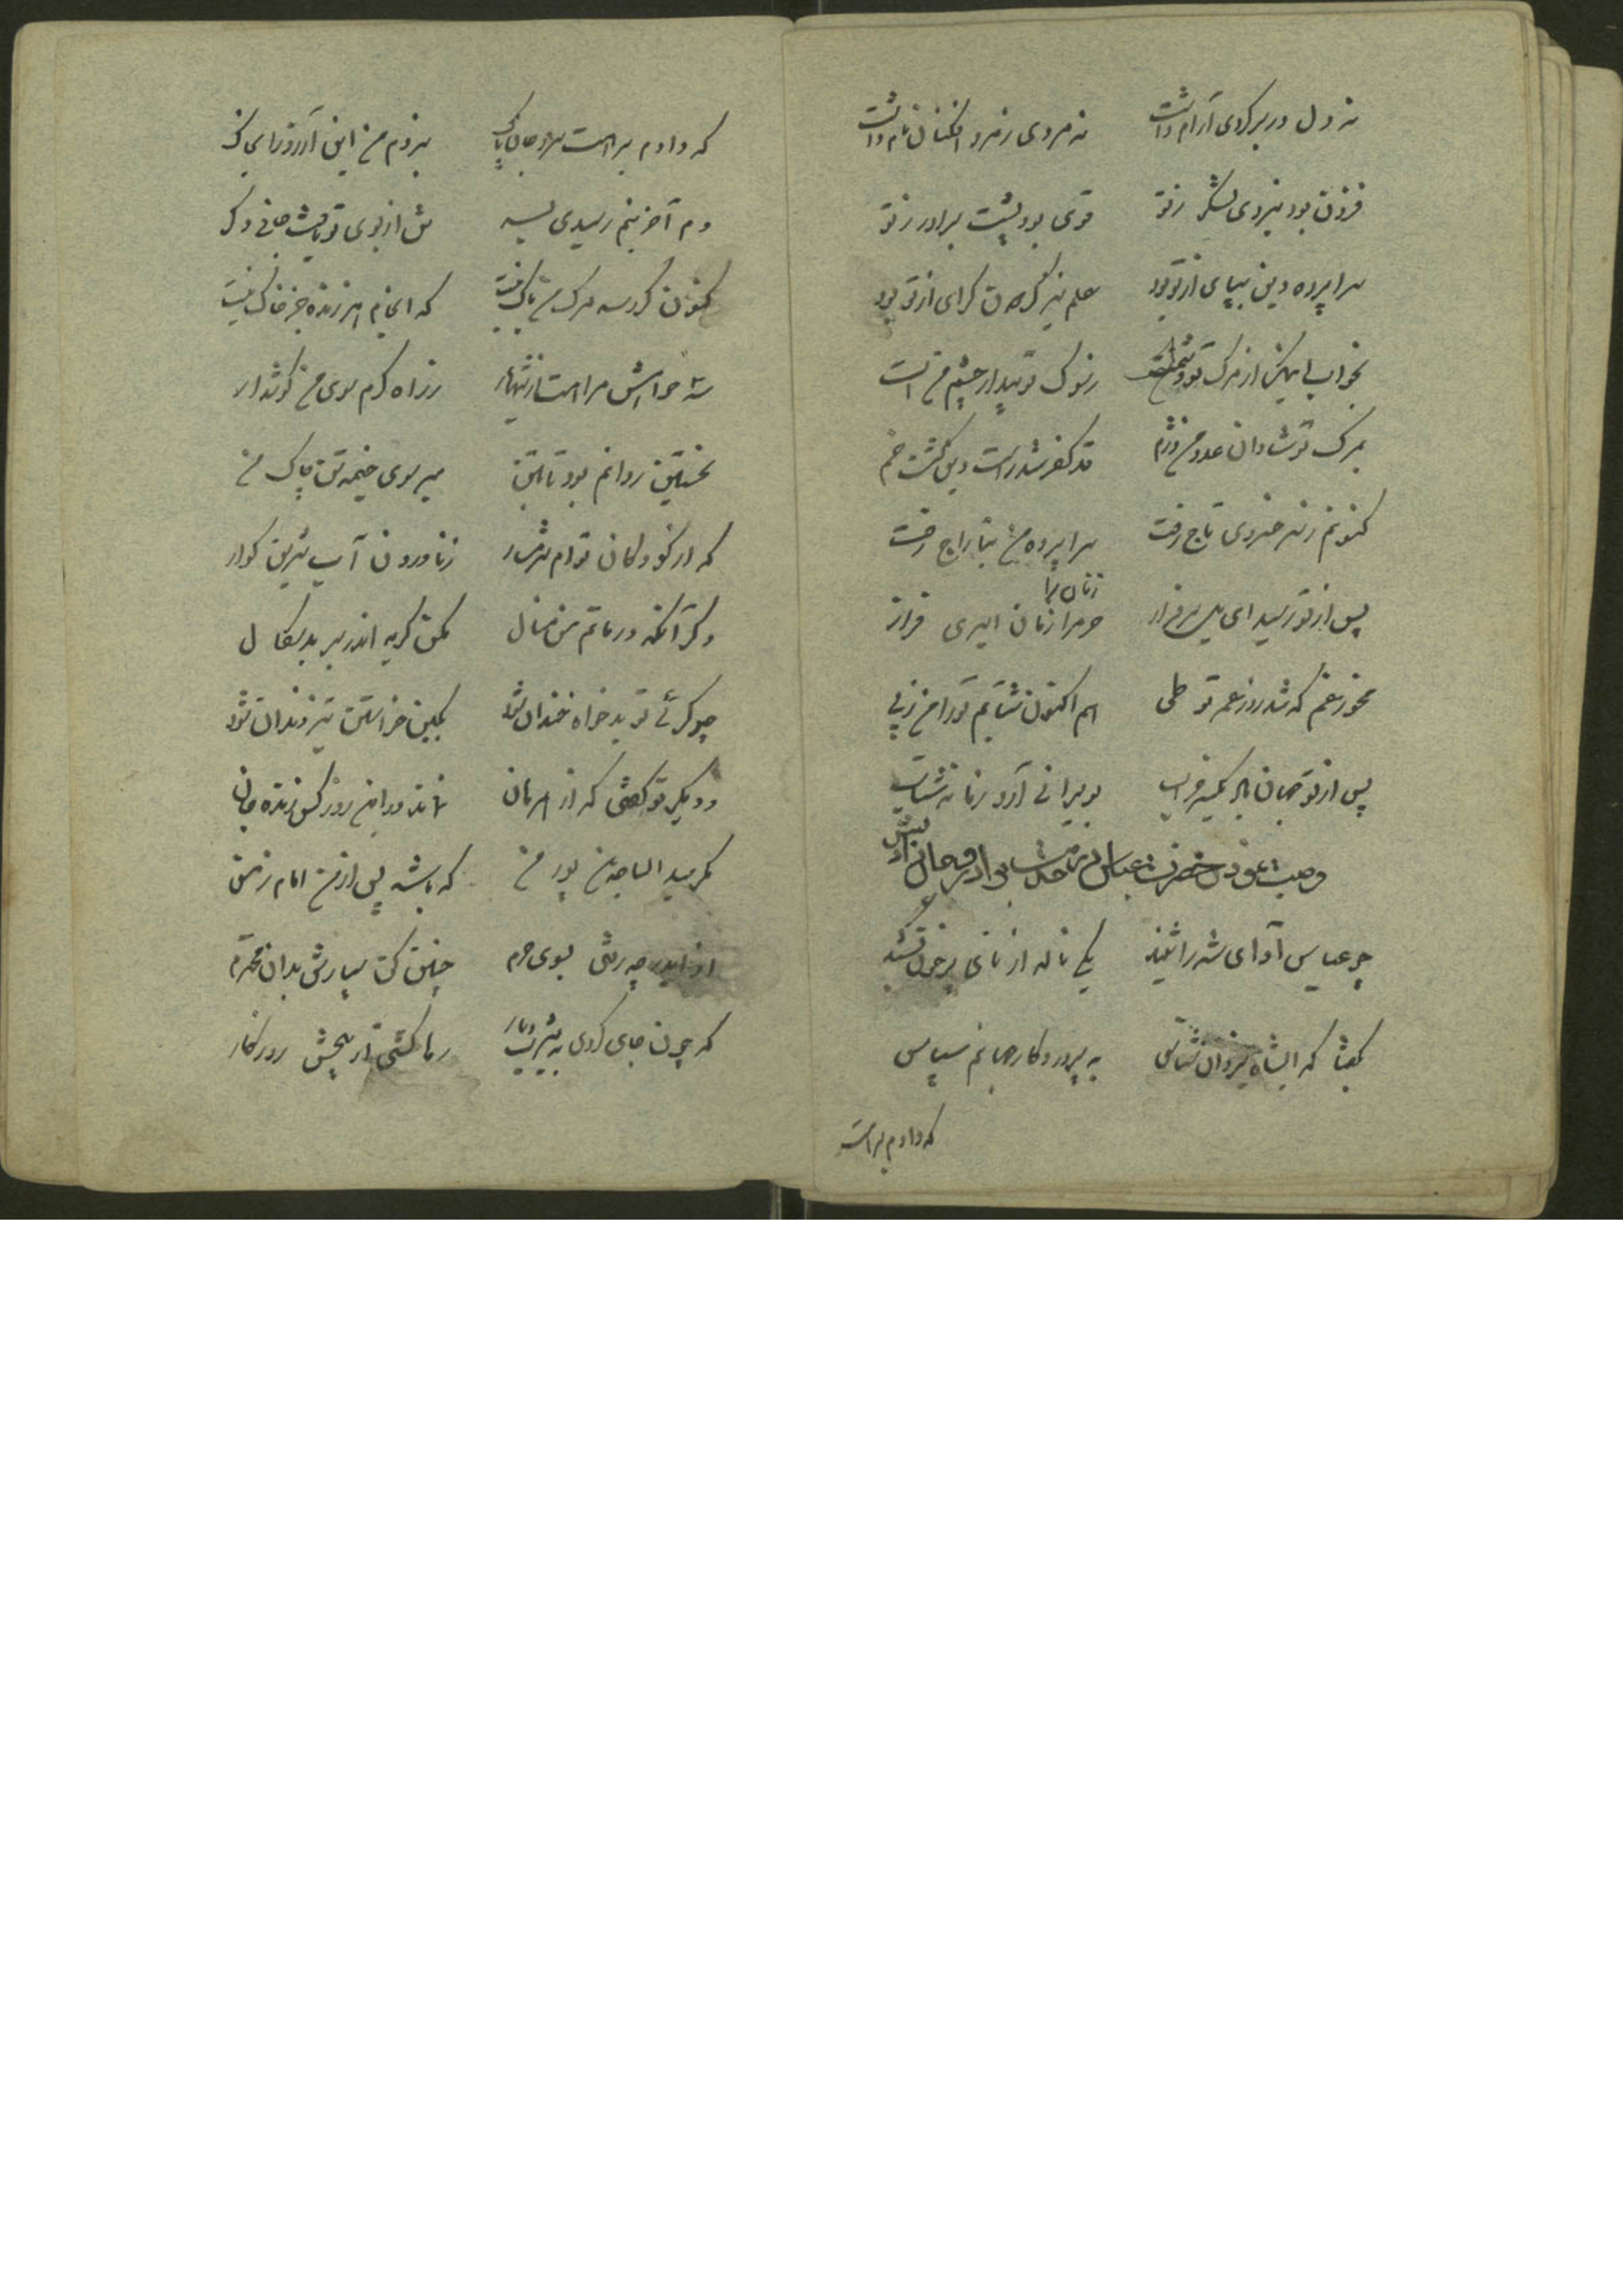 نه دل در بر کودی آرام داشت نه مردی ز مرد افکنان نام داشت
فزون بود نیروی لشکر ز تو قوی بود پشت برادر ز تو
سراپرده دین بپای از تو بود علم نیز گردون گرای از تو بود
بخواب ایمن از مرگ تو دشمن است ز سوک تو بیدار چشم من است
بمرگ تو شادان عدو من دژم قد کفر شد راست دین گشت خم
کنونم ز سر خسروی تاج رفت سراپرده من بتاراج رفت
زنان را
پس از تو رسید ای یل سرفراز حرم را زمان اسیری فراز
مخور غم که شد روز عمر تو طی هم اکنون شتابم تو را من ز پی
پس از تو جهان با یکسر خراب بویرانی آرد زمانه شتاب
وصیت نمودن حضرت عباس
چو عباس آوای شه را شنید یکی ناله از نای پر خون کشید
بگفتا که ایشاه یزدان شناس به پروردگار جهانم سپاس
که دادم براهت
که دادم براهت سر و جان پاک نبردم من این آرزو را بخاک
دم آخرینم رسیدی بسر ش از بوی تو یافت جانی دگر
کنون گر رسد مرگ من باک نیست که انجام هر زنده جز خاک نیست
سه خواهش مرا هست از شهریار ز راه کرم سوی من گوش دار
نخستین روانم بود تا بتن مبر سوی خیمه تن چاک من
که از کودکان توام شرمسار ز ناوردن آب شیرین گوار
دگر آنکه در ماتم من منال مکن گریه اندر بر بدسگال
چو گریی تو بدخواه خندان شود بکین خواستن تیز دندان شود
و دیگر تو گفتی که از همرهان نماند در این روز کس زنده جان
مگر سید الساجدین پور من که باشد پس از من امام زمن
از ایدر چه رفتی بسوی حرم چنین کن سپارش بدان محترم
که چون جای کردی به یثرب دیار رها گشتی از پیچش روزگار